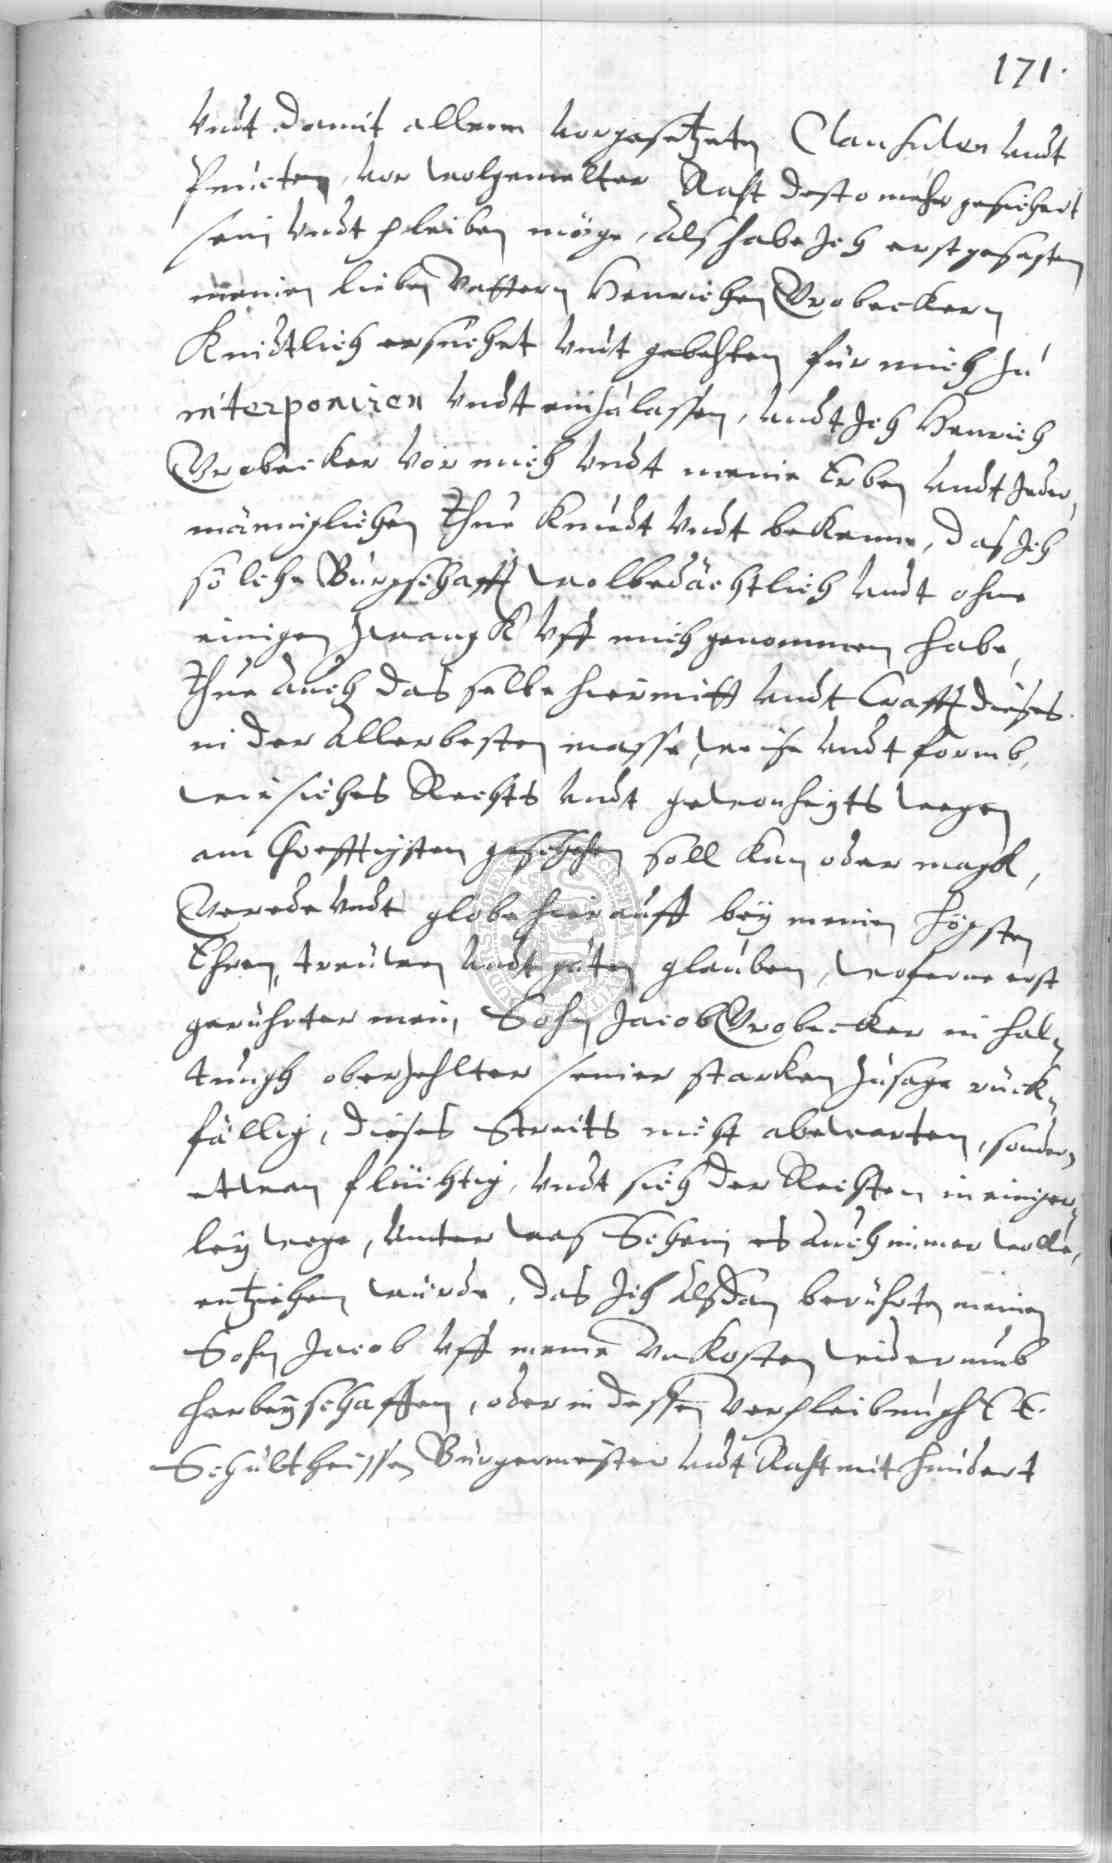 171.
Vndt damit allem vorgesetzten Clausulen vndt
Puncten, vor wolgemelter Raht desto mehr gesichert
sein vndt pleiben möge, Als habe Ich erstgesagten
meinen lieben Vattern Henrichen Vrobeckern
Kindtlich ersuchet vndt gebehten für mich zu
interponiren vndt einzulassen, vndt Ich Henrich
Vrobecker vor mich vndt meine Erben vndt Jeder,
männiglichen Thue Kundt vndt bekenne, das Ich
solche Bürgschafft wolbedächtlich vndt ohne
einigen Zwangk vff mich genommen habe,
Thue auch das selbe hiermitt vndt Crafft dieses.
in der allerbesten masse, weise vndt formb,
wie siches Rechts vndt gewonheits wegen
am Creffttigsten geschehen soll kan oder magk,
Verede vndt globe hierauff bey meinen högsten
Ehren, treuwen vndt guten glauben, woferne erst
gerührter mein Sohn Jacob Vrobecker in hal,
tungk oberzehlter seiner starken Zusage rück,
fällig, dieses Streits nicht abewarten, sondern
etwan flüchtig, vndt sich der Rechten in einiger,
ley wege, vnter was Schein es auch immer wolle,
entziehen würde, das Ich alsdan berührten meinen
Sohn Jacob vff meine Vnkosten widerumb
herbey schaffen, oder in dessen verpleibungk E E.
Schultheissen Bürgermeister vndt Raht mit hundert